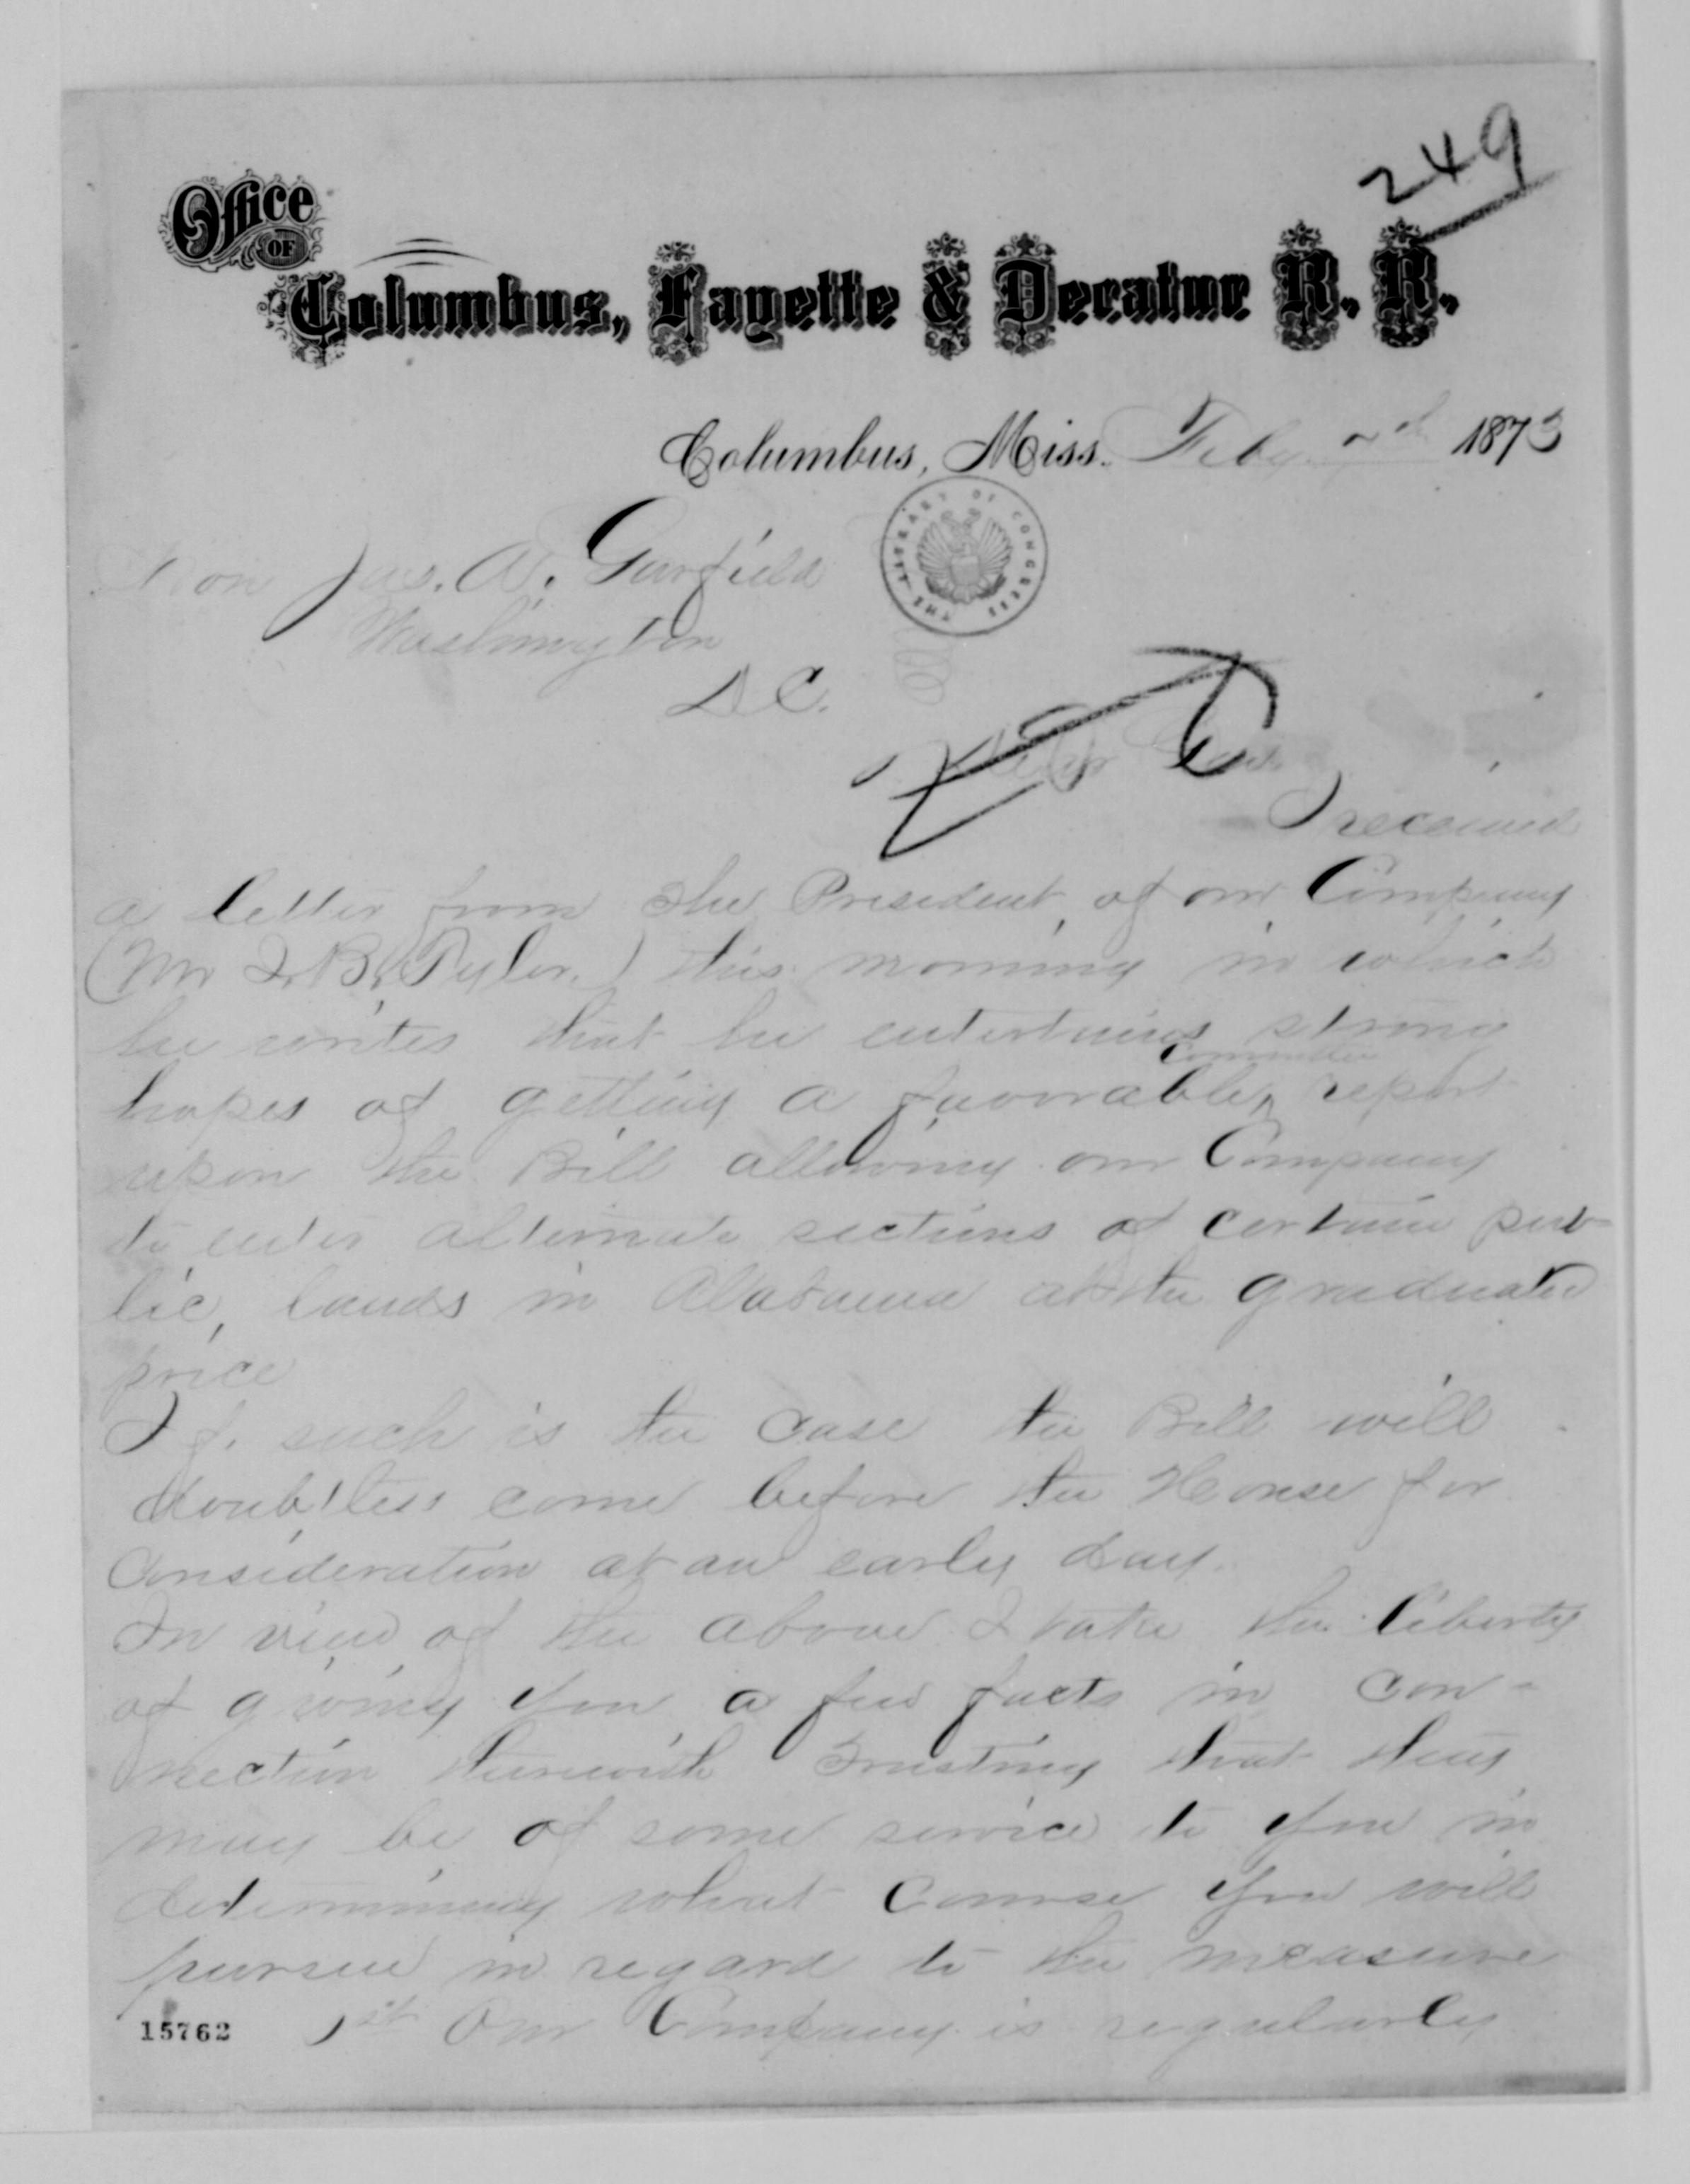 249
Office
OF
Columbus, Fayette & Decatur R. R.
Columbus, Miss. Feby. 1873
THE LIBRARY OF CONGRESS
Hon Jas. A. Garfield
Washington
D C.
Dear
I received
a letter from the President of our Company
(Mr I. B. Tyler.) this morning in which
he writes that he entertains strong
committee
hopes of getting a favorable ^ report
upon the Bill allowing our Company
to enter alternate sections of certain pub-
lic, lands in Alabama at the graduated
price
If such is the case the Bill will
doubtless come before the House for
consideration at an early day.
In view of the above I take the liberty
of giving you a few facts in con-
nection therewith trusting that they
may be of some service to you in
determining what course you will
pursue in regard to the measure
1st Our Company is regularly
15762